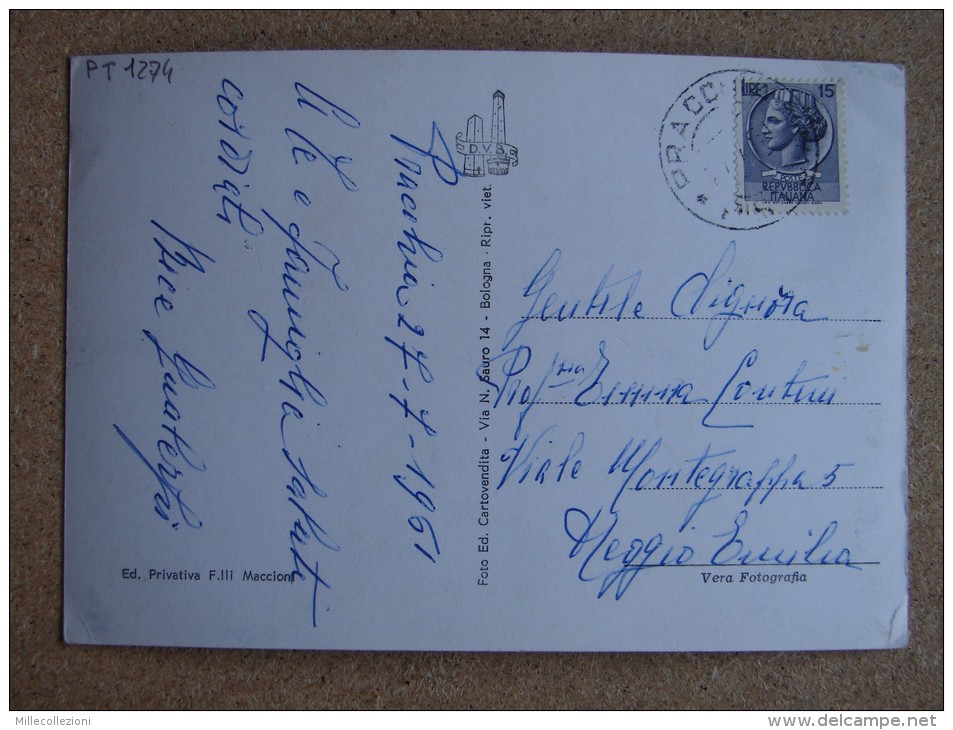 PT 1274
Pracchia 27-7-1961
A lei e famiglia saluti
cordiali
Bice
D.V.B.
Foto Ed. Cartovendita - Via N. Sauro 14 - Bologna - Ripr. viet.
Ed. Privativa F.lli Maccioni
PRACCHIA
LIRE 15
POSTE
REPVBBLICA
ITALIANA
Gentile Signora
Prof.ssa Emma Contini
Viale Montegrappa 5
Reggio Emilia
Vera Fotografia
Millecollezioni
http://www.delcampe.net